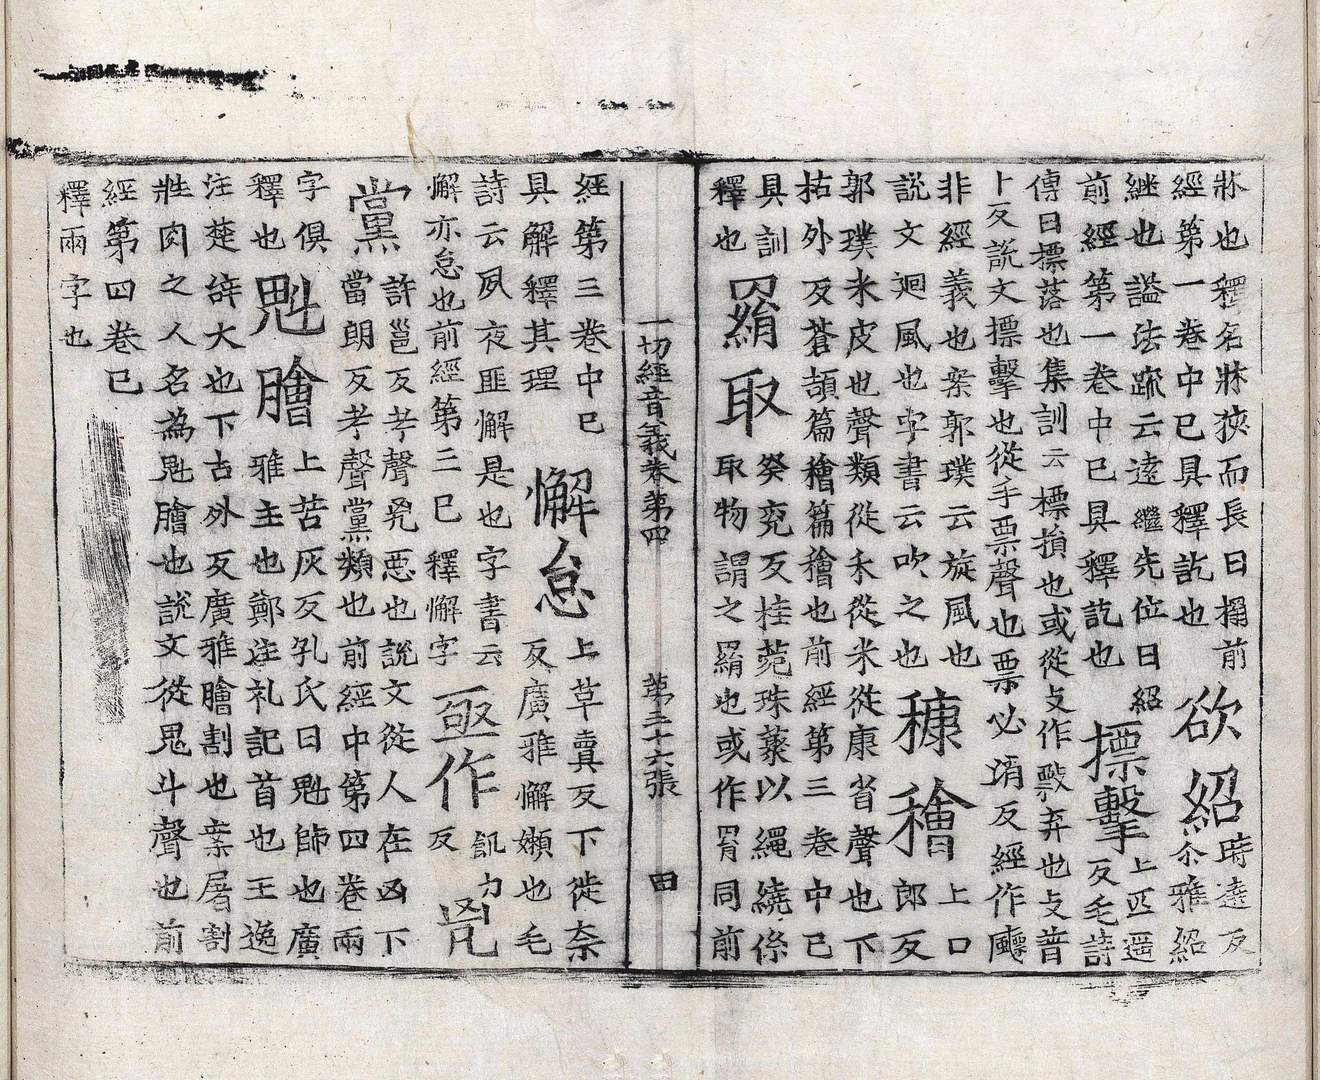 牀也釋名牀狹而長曰榻前
經第一巻中巳具釋訖也
欲紹
時遶反
尒雅紹
継也謚法䟽云遠繼先位曰紹
前經第一巻中巳具釋訖也
摽擊
上匹遥
反毛詩
傳曰摽落也集訓云摽損也或從攴作敹弃也攴普
卜反説文摽擊也從手票聲也票必消反經作飃
非經義也案郭璞云旋風也
説文迴風也字書云吹之也
穅𥢶
上口
郎反
郭璞米皮也聲類從禾從米從康省聲也下
括外反蒼頡篇𥢶篇𥢶也前經第三巻中巳
具訓
釋也
羂取
癸兖反桂菀珠藂以繩繞係
取物謂之羂也或作罥同前
一切經音義巻第四 第三十六張 田
經第三巻中巳
具解釋其理
懈怠
上草賣反下徙柰
反廣雅懈嬾也毛
詩云夙夜匪懈是也字書云
懈亦怠也前經第二巳釋懈字
亟作
飢力
反
兇
黨
許邕反考聲兇惡也説文從人在凶下
當朗反考聲黨類也前經中第四巻兩
字俱
釋也
魁膾
上苦灰反孔氏曰魁師也廣
雅主也鄭注礼記首也王逸
注楚辝大也下古外反廣雅膾割也案屠割
牲肉之人名為魁膾也説文從鬼斗聲也前
經第四巻巳
釋兩字也